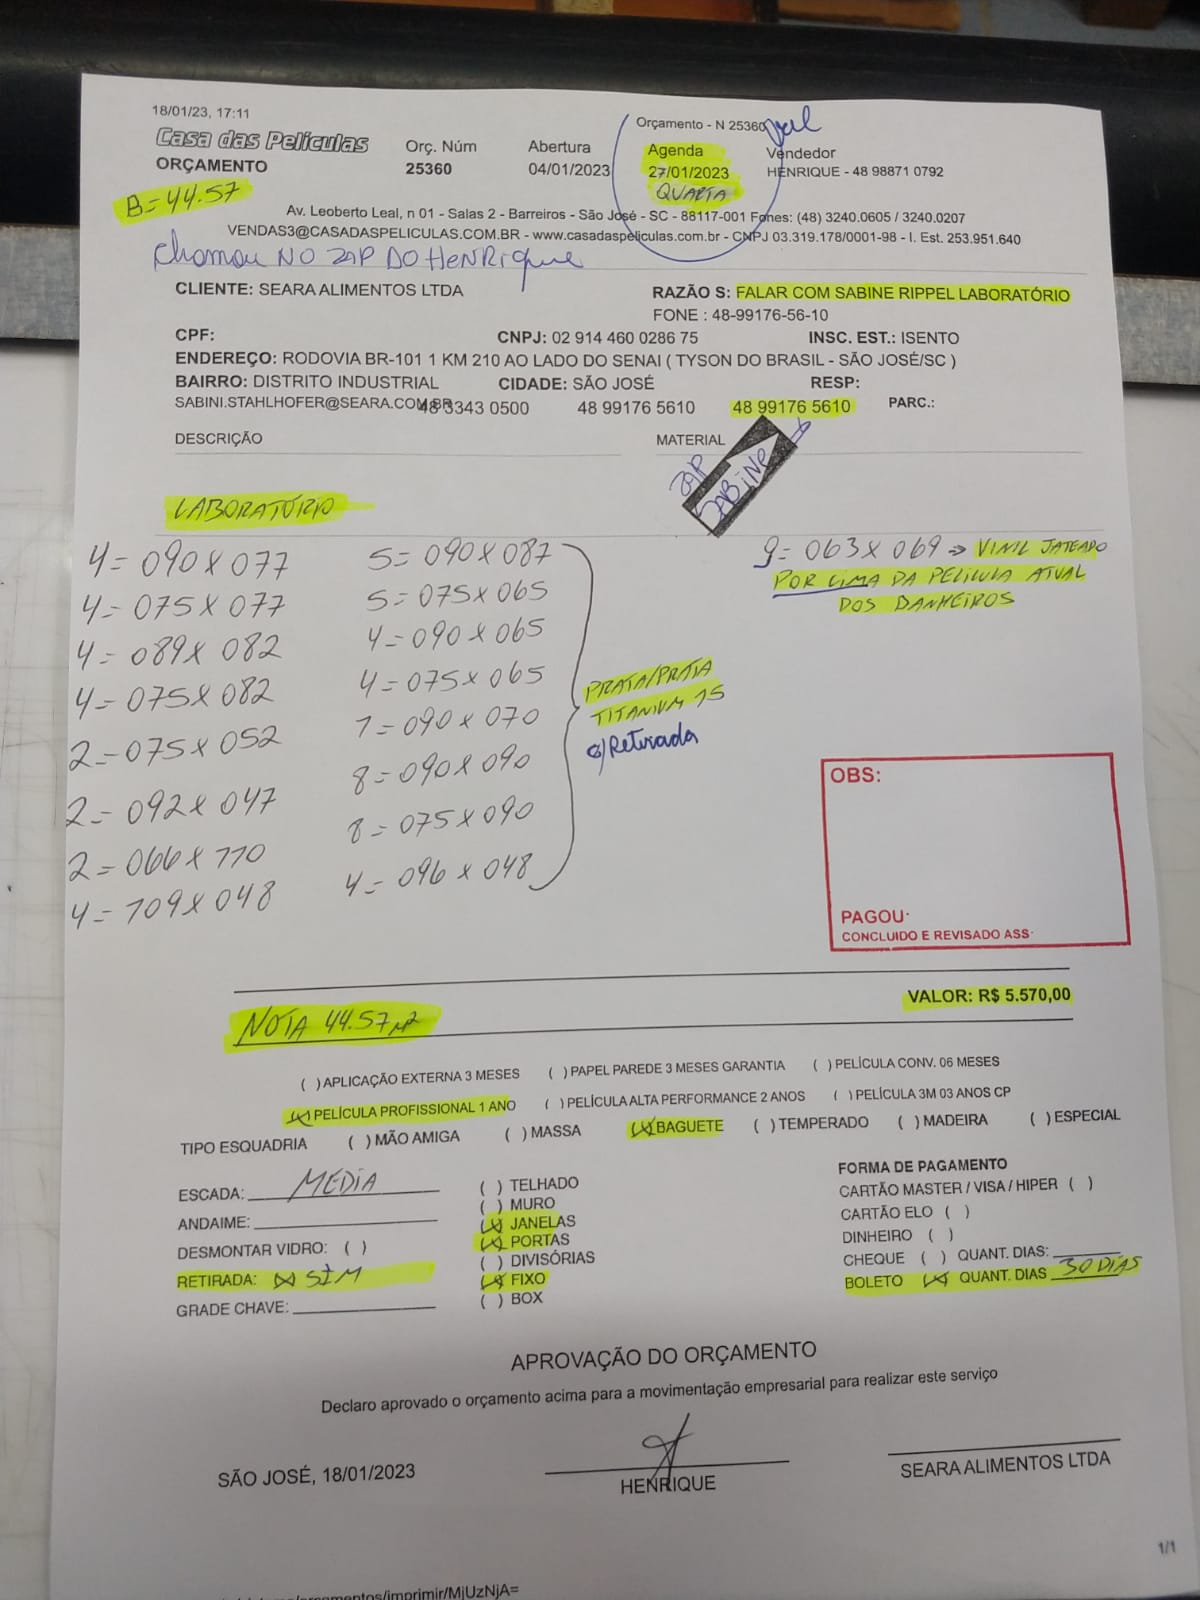 18/01/23, 17:11
Orçamento - N 25360
Casa das Películas
ORÇAMENTO
Orç. Núm
25360
Abertura
04/01/2023
Agenda
27/01/2023
QUARTA
Vendedor
HENRIQUE - 48 98871 0792
B=44.57
Av. Leoberto Leal, n 01 - Salas 2 - Barreiros - São José - SC - 88117-001 Fones: (48) 3240.0605 / 3240.0207
VENDAS3@CASADASPELICULAS.COM.BR - www.casadaspeliculas.com.br - CNPJ 03.319.178/0001-98 - I. Est. 253.951.640
Chamou NO ZAP DO HENRIQUE
CLIENTE: SEARA ALIMENTOS LTDA
RAZÃO S: FALAR COM SABINE RIPPEL LABORATÓRIO
FONE : 48-99176-56-10
CPF:
CNPJ: 02 914 460 0286 75
INSC. EST.: ISENTO
ENDEREÇO: RODOVIA BR-101 1 KM 210 AO LADO DO SENAI ( TYSON DO BRASIL - SÃO JOSÉ/SC )
BAIRRO: DISTRITO INDUSTRIAL
CIDADE: SÃO JOSÉ
RESP:
SABINI.STAHLHOFER@SEARA.COM.BR
48 3343 0500
48 99176 5610
48 99176 5610
PARC.:
DESCRIÇÃO
MATERIAL
ZAP
SABINE
LABORATÓRIO
4=090X077
4=075X077
4=089X082
4=075X082
2=075X052
2=092X047
2=066X110
4=109X048
5=090X087
5=075X065
4=090X065
4=075X065
1=090X070
8=090X090
8=075X090
4=096X048
PRATA/PRATA
TITANIUM 15
c/Retirada
9=063X069 => VINIL JATEADO
POR CIMA DA PELICULA ATUAL
DOS BANHEIROS
OBS:
PAGOU:
CONCLUIDO E REVISADO ASS:
NOTA 44.57 M2
VALOR: R$ 5.570,00
( ) APLICAÇÃO EXTERNA 3 MESES ( ) PAPEL PAREDE 3 MESES GARANTIA ( ) PELÍCULA CONV. 06 MESES
(X) PELÍCULA PROFISSIONAL 1 ANO ( ) PELÍCULA ALTA PERFORMANCE 2 ANOS ( ) PELÍCULA 3M 03 ANOS CP
TIPO ESQUADRIA ( ) MÃO AMIGA ( ) MASSA (X) BAGUETE ( ) TEMPERADO ( ) MADEIRA ( ) ESPECIAL
ESCADA: MEDIA
ANDAIME:
DESMONTAR VIDRO: ( )
RETIRADA: (X) SIM
GRADE CHAVE:
( ) TELHADO
( ) MURO
(X) JANELAS
(X) PORTAS
( ) DIVISÓRIAS
(X) FIXO
( ) BOX
FORMA DE PAGAMENTO
CARTÃO MASTER / VISA / HIPER ( )
CARTÃO ELO ( )
DINHEIRO ( )
CHEQUE ( ) QUANT. DIAS:
BOLETO (X) QUANT. DIAS 30 DIAS
APROVAÇÃO DO ORÇAMENTO
Declaro aprovado o orçamento acima para a movimentação empresarial para realizar este serviço
SÃO JOSÉ, 18/01/2023
HENRIQUE
SEARA ALIMENTOS LTDA
1/1
/imprimir/MjUzNjA=